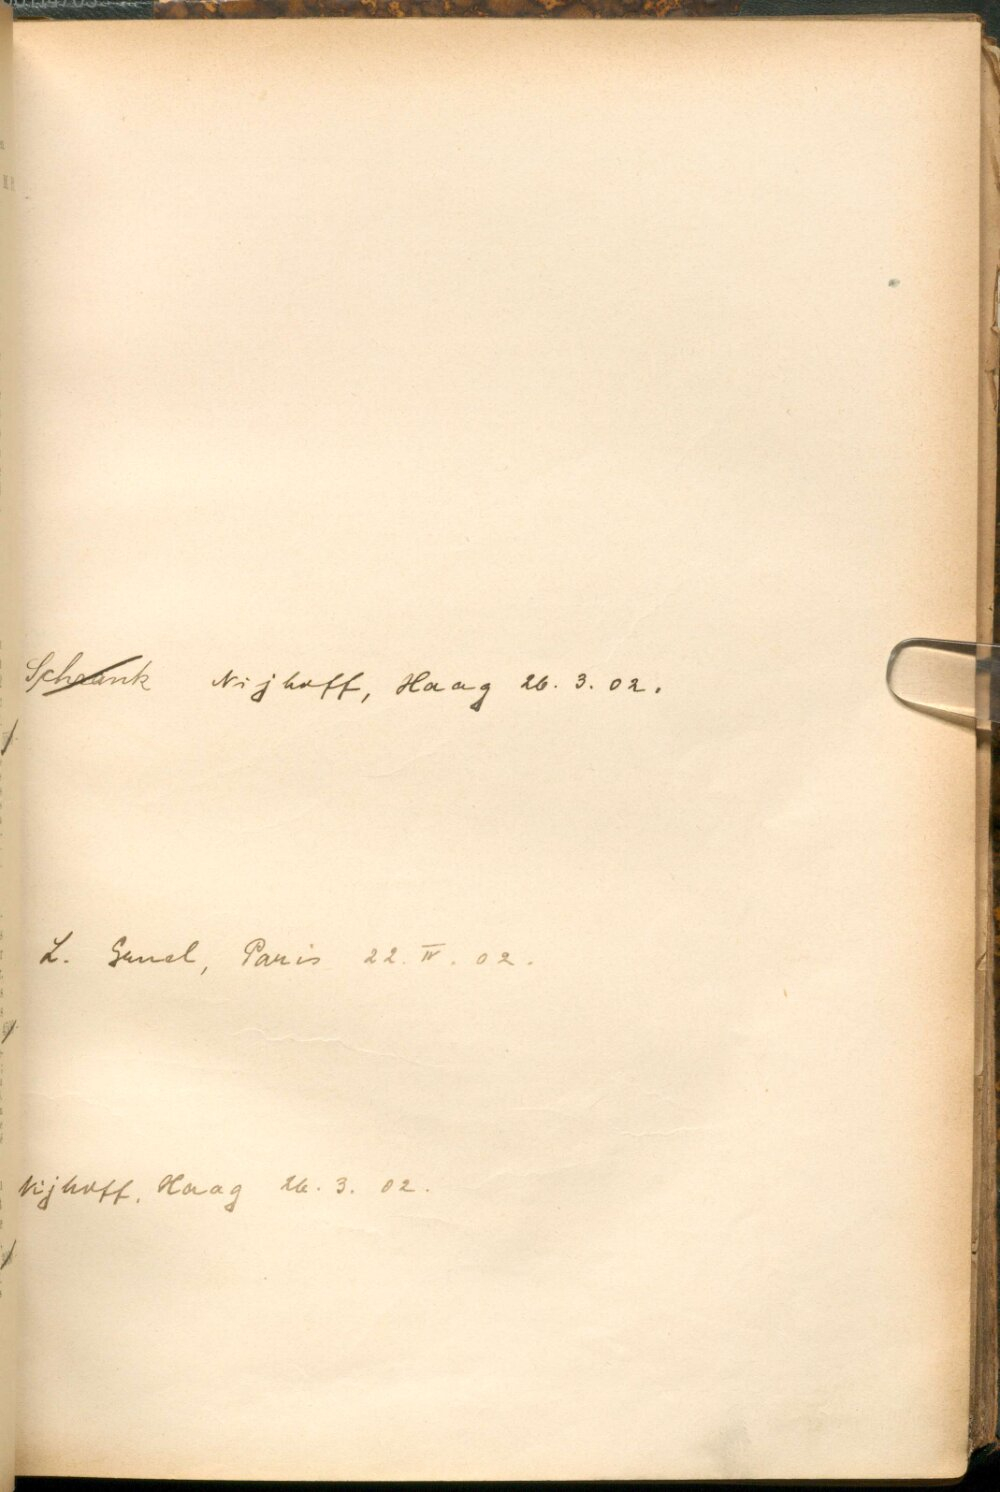 Schrank Nijhoff, Haag 26. 3. 02.
L. Gruel, Paris 22. IV. 02.
Nijhoff, Haag 26. 3. 02.